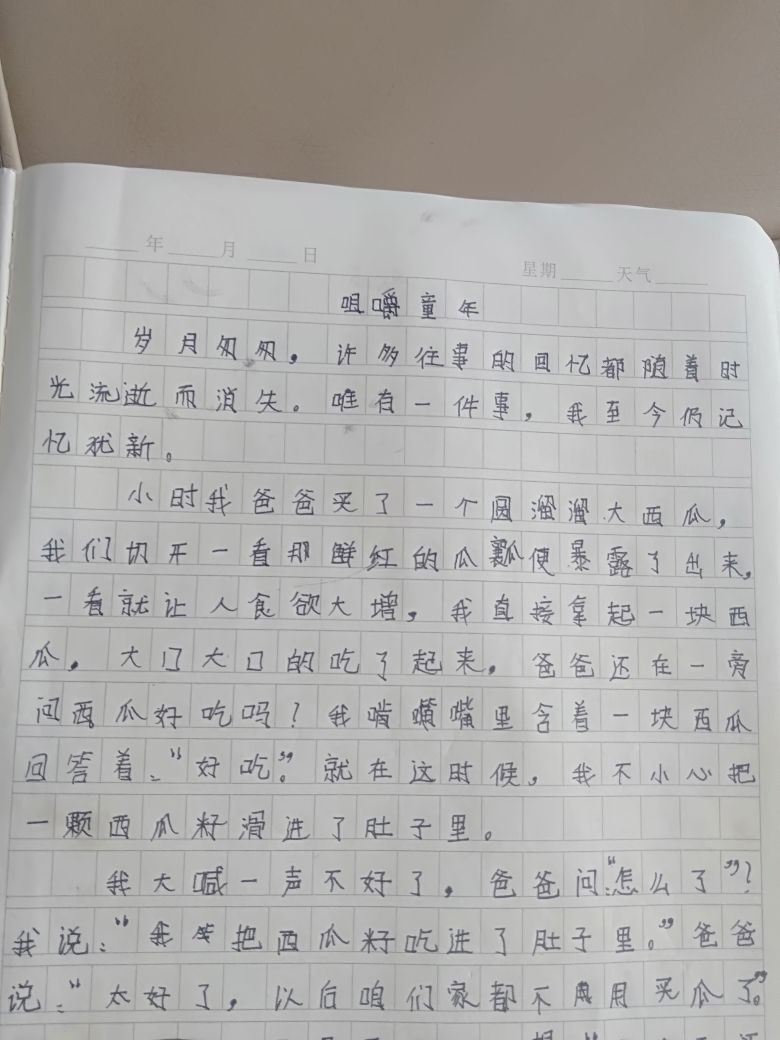 年 月 日 星期 天气
咀嚼童年
岁月匆匆，许多往事的回忆都随着时
光流逝而消失。唯有一件事，我至今仍记
忆犹新。
小时我爸爸买了一个圆溜溜大西瓜，
我们切开一看那鲜红的瓜瓤便暴露了出来，
一看就让人食欲大增，我直接拿起一块西
瓜，大口大口的吃了起来，爸爸还在一旁
问西瓜好吃吗？我嘴里含着一块西瓜
回答着：“好吃”。就在这时候，我不小心把
一颗西瓜籽滑进了肚子里。
我大喊一声不好了，爸爸问：“怎么了”？
我说：“我把西瓜籽吃进了肚子里。”爸爸
说：“太好了，以后咱们家都不用买瓜了。”